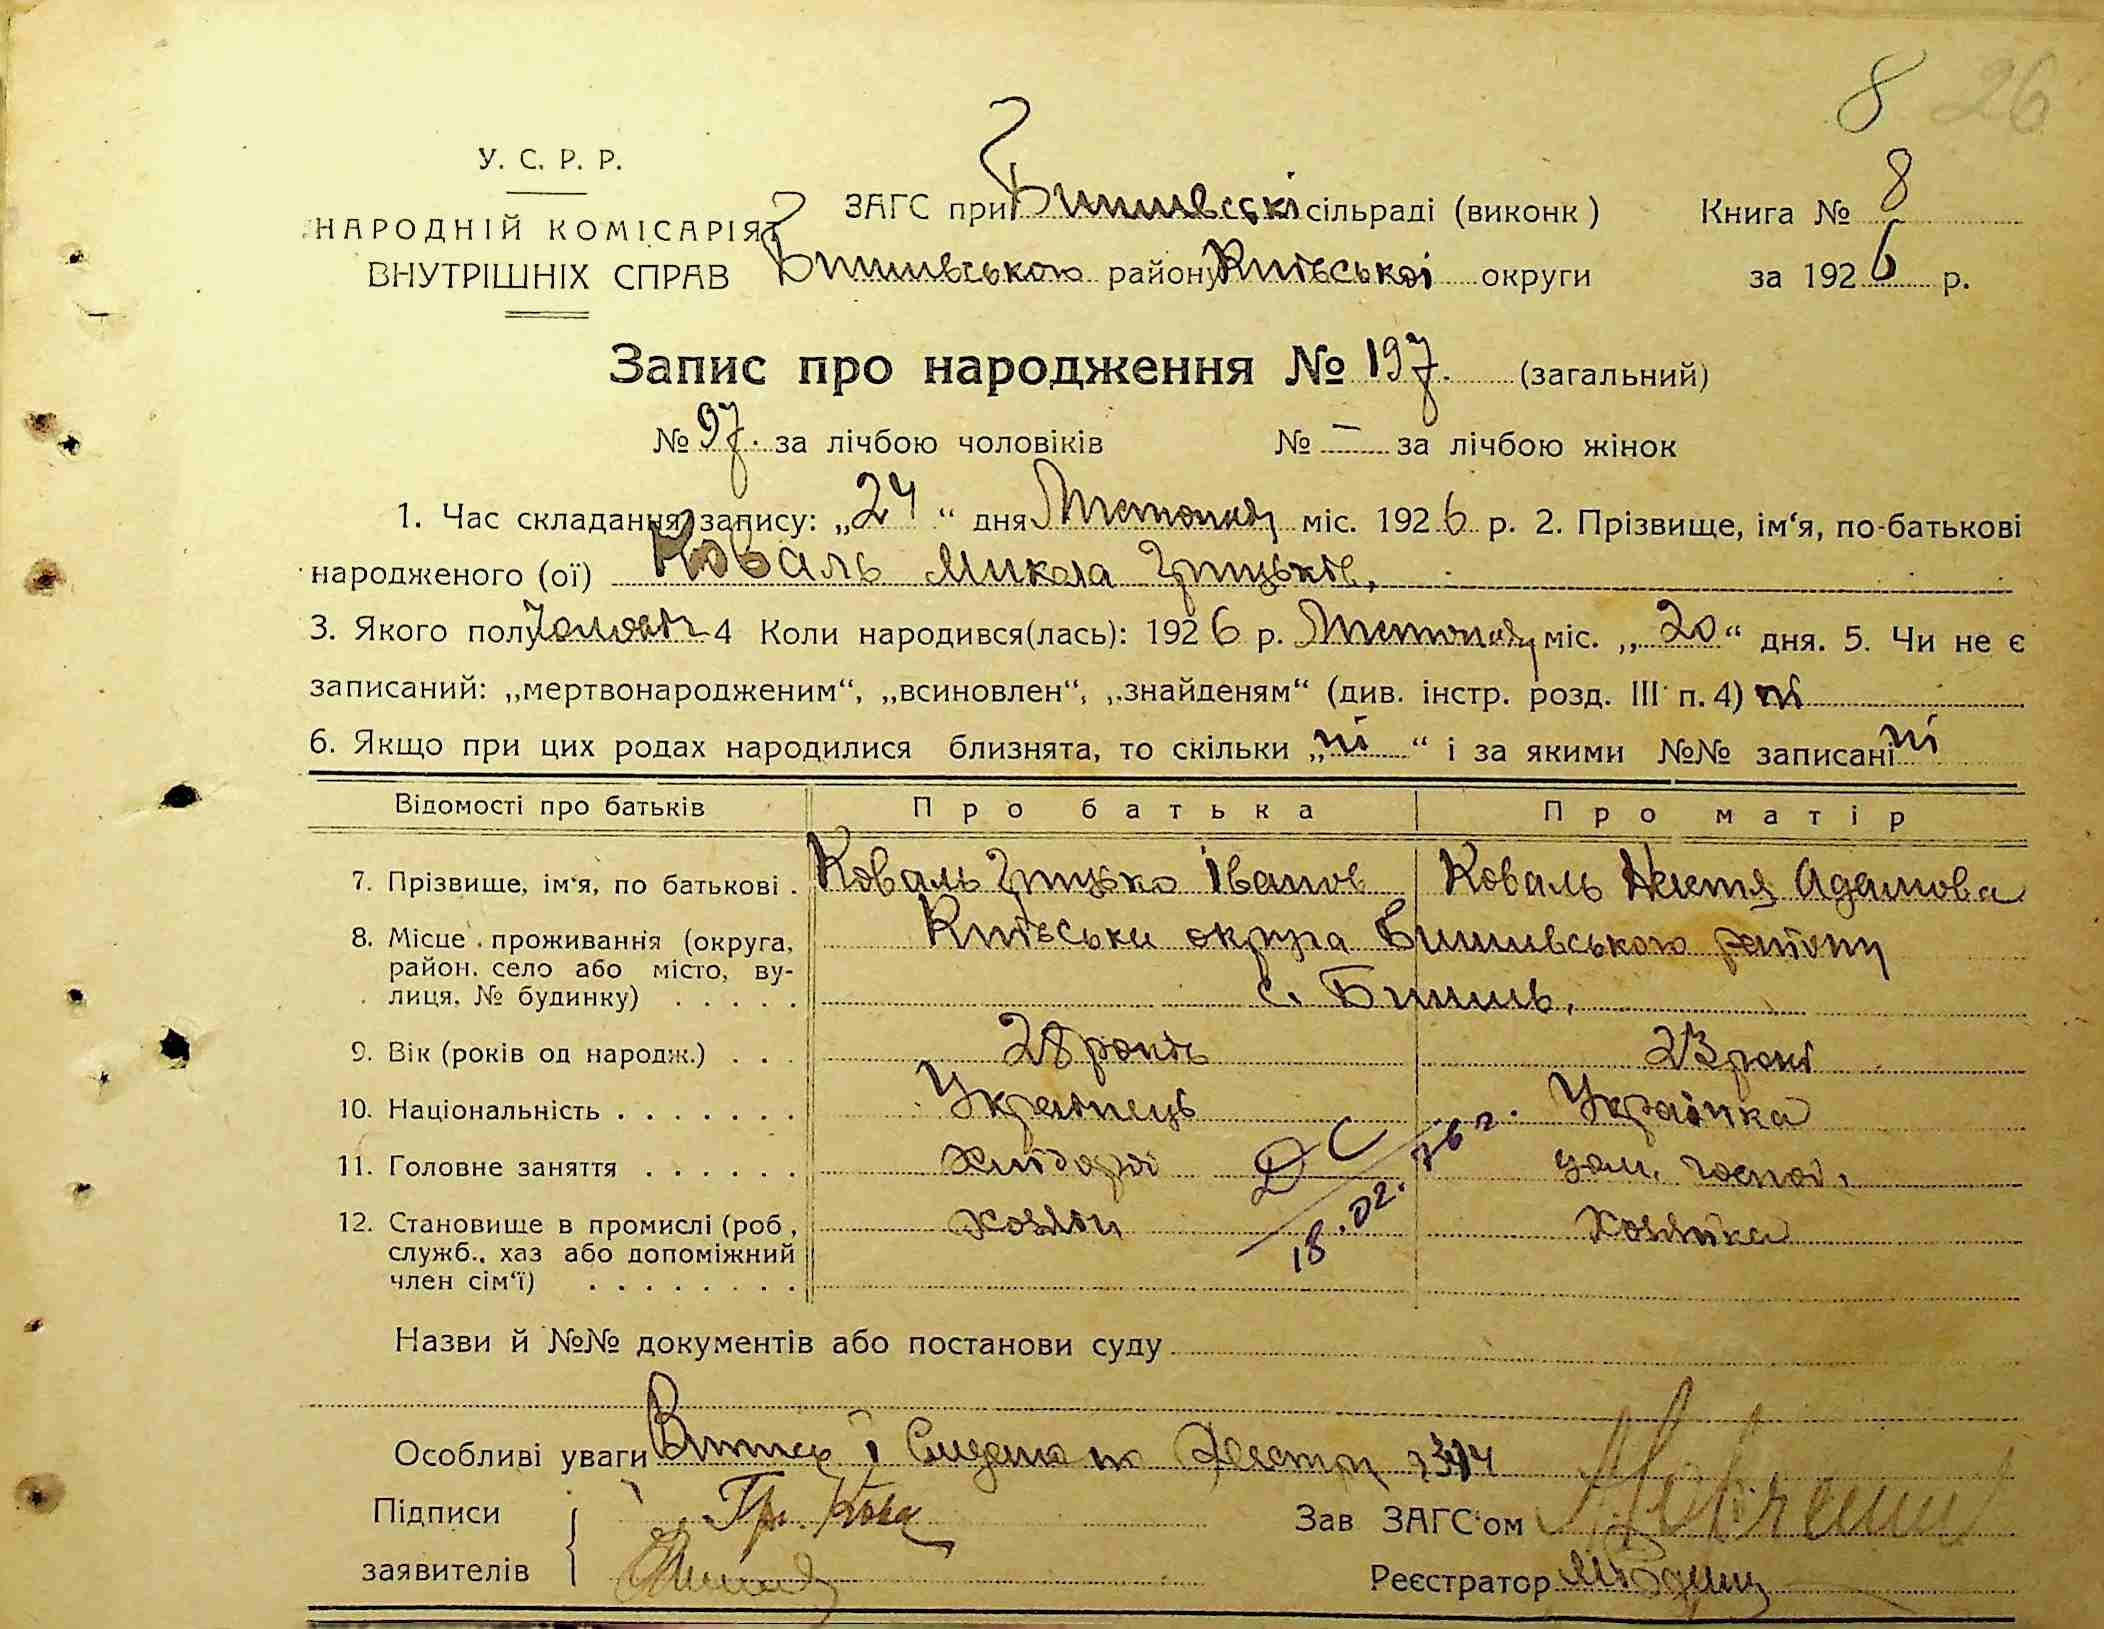 8 26
У. С. Р. Р.
НАРОДНІЙ КОМІСАРІЯТ
ВНУТРІШНІХ СПРАВ
ЗАГС при Бишівські сільраді (виконк)
Бишивського району Київської округи
Книга № 8
за 1926 р.
Запис про народження № 197. (загальний)
№ 97. за лічбою чоловіків № — за лічбою жінок
1. Час складання запису: „24“ дня Листопада міс. 1926 р. 2. Прізвище, ім‘я, по-батькові
народженого (ої) Коваль Микола Грицьків,
3. Якого полу 4 Коли народився(лась): 1926 р. Листопаду міс. „20“ дня. 5. Чи не є
записаний: „мертвонародженим“, „всиновлен“, „знайденям“ (див. інстр. розд. III п. 4) ні
6. Якщо при цих родах народилися близнята, то скільки „ні“ і за якими №№ записані ні
Відомості про батьків Про батька Про матір
7. Прізвище, ім‘я, по батькові . Коваль Грицько Іванов Коваль Настя Адамова
8. Місце проживання (округа, Київська округа Бишивського району
район, село або місто, ву-
лиця, № будинку) . . . . . с. Бишів,
9. Вік (років од народж.) . . . 28 років 23 рокі
10. Національність . . . . . . . Українець Українка
11. Головне заняття . . . . . . Хлібороб дом. господ.
ДС
18.02.
12. Становище в промислі (роб, хозяїн Хозяйка
служб., хаз або допоміжний
член сім‘ї) . . . . . . . .
Назви й №№ документів або постанови суду
Особливі уваги
Підписи
заявителів
Гр. Кова
Зав ЗАГС‘ом
Реєстратор